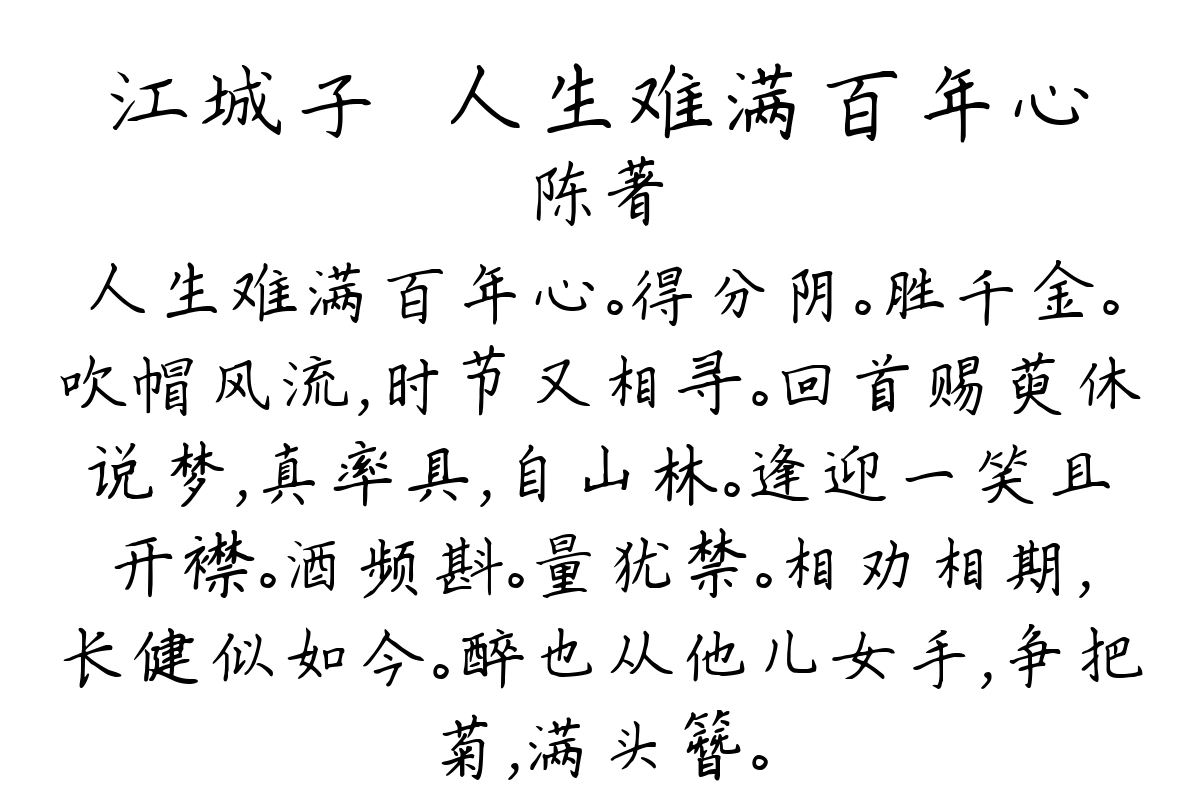 江城子 人生难满百年心
陈著
人生难满百年心。得分阴。胜千金。
吹帽风流,时节又相寻。回首赐萸休
说梦,真率具,自山林。逢迎一笑且
开襟。酒频斟。量犹禁。相劝相期,
长健似如今。醉也从他儿女手,争把
菊,满头簪。